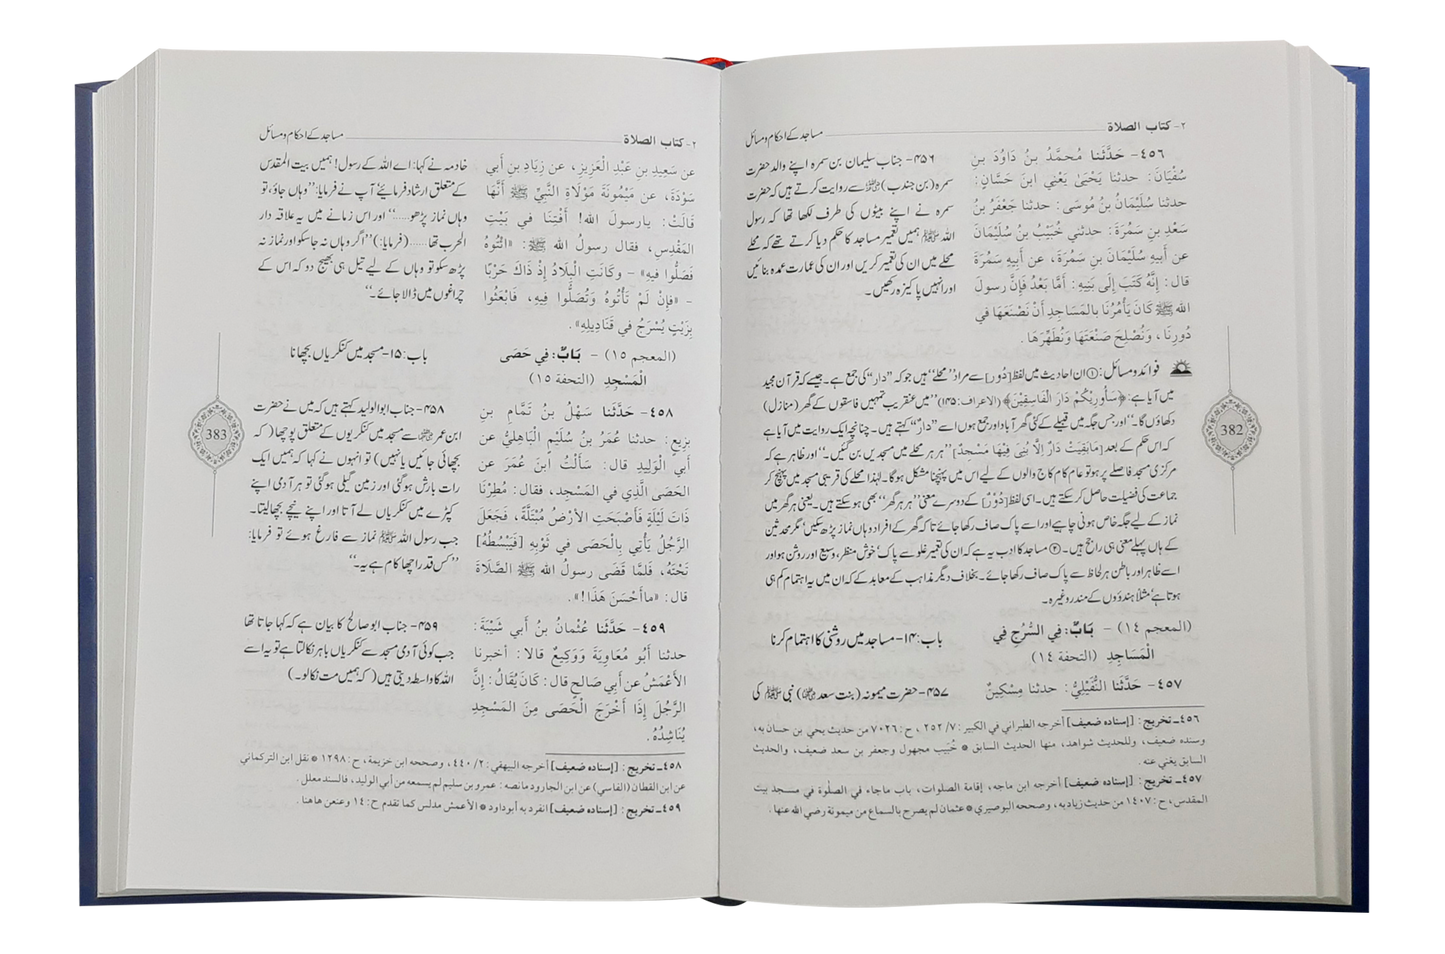 ٢- كتاب الصلاة
مساجد کے احکام و مسائل
٤٥٦- حَدَّثَنا مُحَمَّدُ بنُ دَاوُدَ بنِ
سُفْيَانَ: حدثنا يَحْيَىٰ يَعْني ابنَ حَسَّانَ:
حدثنا سُلَيْمَانُ بنُ مُوسَى: حدثنا جَعْفَرُ بنُ
سَعْدِ بنِ سَمُرَةَ: حدثني خُبَيْبُ بنُ سُلَيْمَانَ
عن أبِيهِ سُلَيْمَانَ بنِ سَمُرَةَ، عن أبِيهِ سَمُرَةَ
قال: إنَّهُ كَتَبَ إلَى بَنِيهِ: أمَّا بَعْدُ فإنَّ رسولَ
الله ﷺ كَانَ يَأْمُرُنَا بالمَسَاجِدِ أنْ نَصْنَعَهَا في
دُورِنَا، وَنُصْلِحَ صَنْعَتَهَا وَنُطَهِّرَهَا.
۴۵۶- جناب سلیمان بن سمرہ اپنے والد حضرت
سمرہ (بن جندب) ﷜ سے روایت کرتے ہیں کہ حضرت
سمرہ نے اپنے بیٹوں کی طرف لکھا تھا کہ رسول
اللہ ﷺ ہمیں تعمیر مساجد کا حکم دیا کرتے تھے کہ محلے
محلے میں ان کی تعمیر کریں اور ان کی عمارت عمدہ بنائیں
اور انہیں پاکیزہ رکھیں۔
فوائد و مسائل: ① ان احادیث میں لفظ [دُور] سے مراد ”محلے“ ہیں جو کہ ”دار“ کی جمع ہے۔ جیسے کہ قرآن مجید
میں آیا ہے: ﴿سَأُورِيكُمْ دَارَ الْفَاسِقِينَ﴾ (الاعراف:۱۴۵) ”میں عنقریب تمہیں فاسقوں کے گھر (منازل)
دکھاؤں گا۔“ اور جس جگہ میں قبیلے کے کئی گھر آباد اور جمع ہوں اسے ”دارٌ“ کہتے ہیں۔ چنانچہ ایک روایت میں آیا ہے
کہ اس حکم کے بعد [مَا بَقِيَتْ دَارٌ إِلَّا بُنِيَ فِيهَا مَسْجِدٌ] ”ہر ہر محلے میں مسجدیں بن گئیں۔“ اور ظاہر ہے کہ
مرکزی مسجد فاصلے پر ہو تو عام کام کاج والوں کے لیے اس میں پہنچنا مشکل ہوگا۔ لہٰذا محلے کی قریبی مسجد میں پہنچ کر
جماعت کی فضیلت حاصل کر سکتے ہیں۔ اسی لفظ [دُوْر] کے دوسرے معنی ”ہر ہر گھر“ بھی ہو سکتے ہیں۔ یعنی ہر گھر میں
نماز کے لیے جگہ خاص ہونی چاہیے اور اسے پاک صاف رکھا جائے تاکہ گھر کے افراد وہاں نماز پڑھ سکیں‘ مگر محدثین
کے ہاں پہلے معنی ہی راجح ہیں۔ ② مساجد کا ادب یہ ہے کہ ان کی تعمیر غلو سے پاک‘ خوش منظر، وسیع اور روشن ہو اور
اسے ظاہر اور باطن ہر لحاظ سے پاک صاف رکھا جائے۔ بخلاف دیگر مذاہب کے معابد کے کہ ان میں یہ اہتمام کم ہی
ہوتا ہے‘ مثلاً ہندؤوں کے مندر وغیرہ۔
(المعجم ١٤) - بَابٌ: فِي السُّرُجِ فِي
الْمَسَاجِدِ (التحفة ١٤)
باب:۱۴- مساجد میں روشنی کا اہتمام کرنا
٤٥٧- حَدَّثَنا النُّفَيْلِيُّ: حدثنا مِسْكِينٌ
۴۵۷- حضرت میمونہ (بنت سعد ﷞) نبی ﷺ کی
٤٥٦ـ تخريج: [إسناده ضعيف] أخرجه الطبراني في الكبير: ٧/ ٢٥٢، ح: ٧٠٢٦ من حديث يحيى بن حسان به،
وسنده ضعيف، وللحديث شواهد، منها الحديث السابق * خُبَيب مجهول وجعفر بن سعد ضعيف، والحديث
السابق يغني عنه.
٤٥٧ـ تخريج: [إسناده ضعيف] أخرجه ابن ماجه، إقامة الصلوات، باب ماجاء في الصلٰوة في مسجد بيت
المقدس، ح: ١٤٠٧ من حديث زيادبه، وصححه البوصيري * عثمان لم يصرح بالسماع من ميمونة رضي الله عنها.
382
٢- كتاب الصلاة
مساجد کے احکام و مسائل
عن سَعِيدِ بنِ عَبْدِ الْعَزِيزِ، عن زِيَادِ بن أبي
سَوْدَةَ، عن مَيْمُونَةَ مَوْلَاةِ النَّبيِّ ﷺ أنَّهَا
قَالَتْ: يارسولَ الله! أَفْتِنَا في بَيْتِ
المَقْدِسِ، فقال رسولُ الله ﷺ: «ائْتُوهُ
فَصَلُّوا فيهِ» - وكَانَتِ الْبِلَادُ إذْ ذَاكَ حَرْبًا
- «فإنْ لَمْ تَأْتُوهُ وَتُصَلُّوا فِيهِ، فَابْعَثُوا
بِزَيْتٍ يُسْرَجُ في قَنَادِيلِهِ».
خادمہ نے کہا: اے اللہ کے رسول! ہمیں بیت المقدس
کے متعلق ارشاد فرمائیے! آپ نے فرمایا: ”وہاں جاؤ، تو
وہاں نماز پڑھو.....“ اور اس زمانے میں یہ علاقہ دار
الحرب تھا..... (فرمایا:) ”اگر وہاں نہ جا سکو اور نماز نہ
پڑھ سکو تو وہاں کے لیے تیل ہی بھیج دو کہ اس کے
چراغوں میں ڈالا جائے۔“
(المعجم ١٥) - بَابٌ: فِي حَصَى
الْمَسْجِدِ (التحفة ١٥)
باب:۱۵- مسجد میں کنکریاں بچھانا
٤٥٨- حَدَّثَنا سَهْلُ بنُ تَمَّامِ بنِ
بَزِيعٍ: حدثنا عُمَرُ بنُ سُلَيْمٍ الْبَاهِليُّ عن
أبي الْوَلِيدِ قال: سَأَلْتُ ابنَ عُمَرَ عن
الحَصَى الَّذِي في المَسْجِدِ، فقال: مُطِرْنَا
ذَاتَ لَيْلَةٍ فَأَصْبَحَتِ الأرْضُ مُبْتَلَّةً، فَجَعَلَ
الرَّجُلُ يَأْتِي بِالْحَصَى في ثَوْبِهِ [فَيَبْسُطُهُ]
تَحْتَهُ، فَلمَّا قَضَى رسولُ الله ﷺ الصَّلَاةَ
قال: «ماأَحْسَنَ هَذَا!».
۴۵۸- جناب ابو الولید کہتے ہیں کہ میں نے حضرت
ابن عمر سے مسجد میں کنکریوں کے متعلق پوچھا ( کہ
بچھائی جائیں یا نہیں) تو انہوں نے کہا کہ ہمیں ایک
رات بارش ہوگئی اور زمین گیلی ہوگئی تو ہر آدمی اپنے
کپڑے میں کنکریاں لے آتا اور اپنے نیچے بچھا لیتا۔
جب رسول اللہ ﷺ نماز سے فارغ ہوئے تو فرمایا:
”کس قدر اچھا کام ہے یہ۔“
٤٥٩- حَدَّثَنا عُثْمانُ بنُ أبي شَيْبَةَ:
حدثنا أَبُو مُعَاوِيَةَ وَوَكِيعٌ قالا: أخبرنا
الأعْمَشُ عن أبي صَالحٍ قال: كَانَ يُقَالُ: إنَّ
الرَّجُلَ إذَا أخْرَجَ الْحَصَى مِنَ المَسْجِدِ
يُنَاشِدُهُ.
۴۵۹- جناب ابو صالح کا بیان ہے کہ کہا جاتا تھا
جب کوئی آدمی مسجد سے کنکریاں باہر نکالتا ہے تو یہ اسے
اللہ کا واسطہ دیتی ہیں (کہ ہمیں مت نکالو۔)
٤٥٨ـ تخريج: [إسناده ضعيف] أخرجه البيهقي: ٢/ ٤٤٠، وصححه ابن خزيمة، ح: ١٢٩٨ * نقل ابن التركماني
عن ابن القطان (الفاسي) عن ابن الجارود مانصه: عمرو بن سليم لم يسمعه من أبي الوليد، فالسند معلل.
٤٥٩ـ تخريج: [إسناده ضعيف] انفرد به أبوداود * الأعمش مدلس كما تقدم ح: ١٤ وعنعن هاهنا.
383